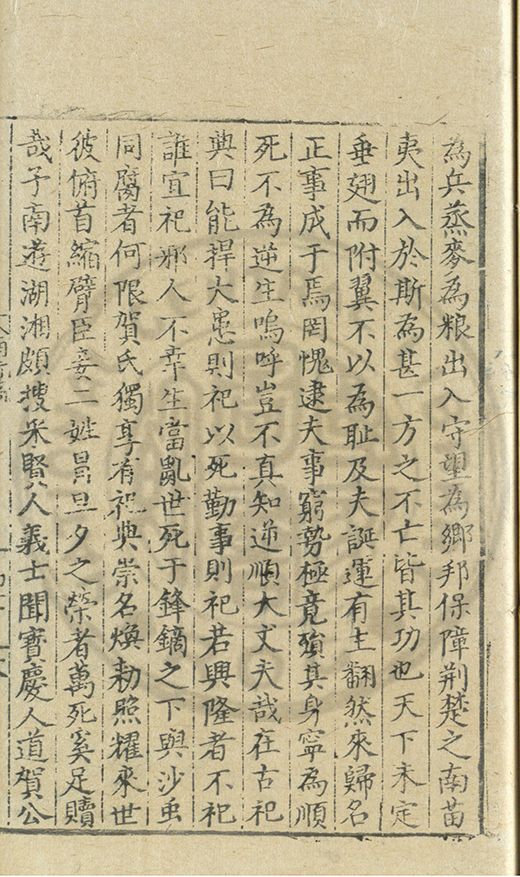 為兵蒸麥為粮出入守望為鄉邦保障荆楚之南苗
夷出入於斯為甚一方之不亡皆其功也天下未定
垂翅而附翼不以為耻及夫誕運有主翻然來歸名
正事成于焉罔愧逮夫事窮勢極竟殞其身寧為順
死不為逆生嗚呼豈不真知逆順大丈夫哉在古祀
典曰能捍大患則祀以死勤事則祀若興隆者不祀
誰宜祀邪人不幸生當亂世死于鋒鏑之下與沙虫
同腐者何限賀氏獨享有祀典崇名煥勅照耀來世
彼俯首縮臂臣妾二姓冒旦夕之榮者萬死奚足贖
哉予南遊湖湘頗搜采賢人義士聞寳慶人道賀公